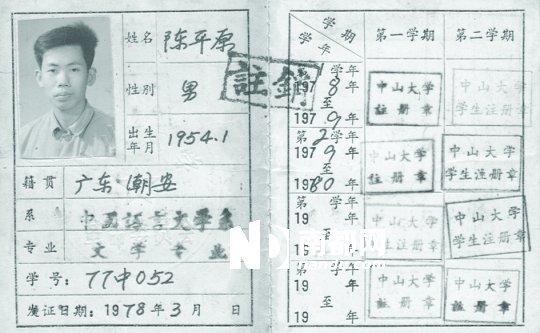 姓名 陈平原
性别 男
出生年月 1954.1
籍贯 广东潮安
系 中国语言文学系
专业 文学专业
学号: 77中052
发证日期: 1978年3月 日
学期
学年
第一学期
第二学期
註銷
第 学年
1978年
至
1979年
第2学年
1979年
至
1980年
第 学年
19 年
至
19 年
第 学年
19 年
至
19 年
中山大学
註册章
中山大学
学生注册章
中山大学
註册章
中山大学
学生注册章
中山大学
註册章
中山大学
学生注册章
中山大学
註册章
中山大学
註册章
南都网